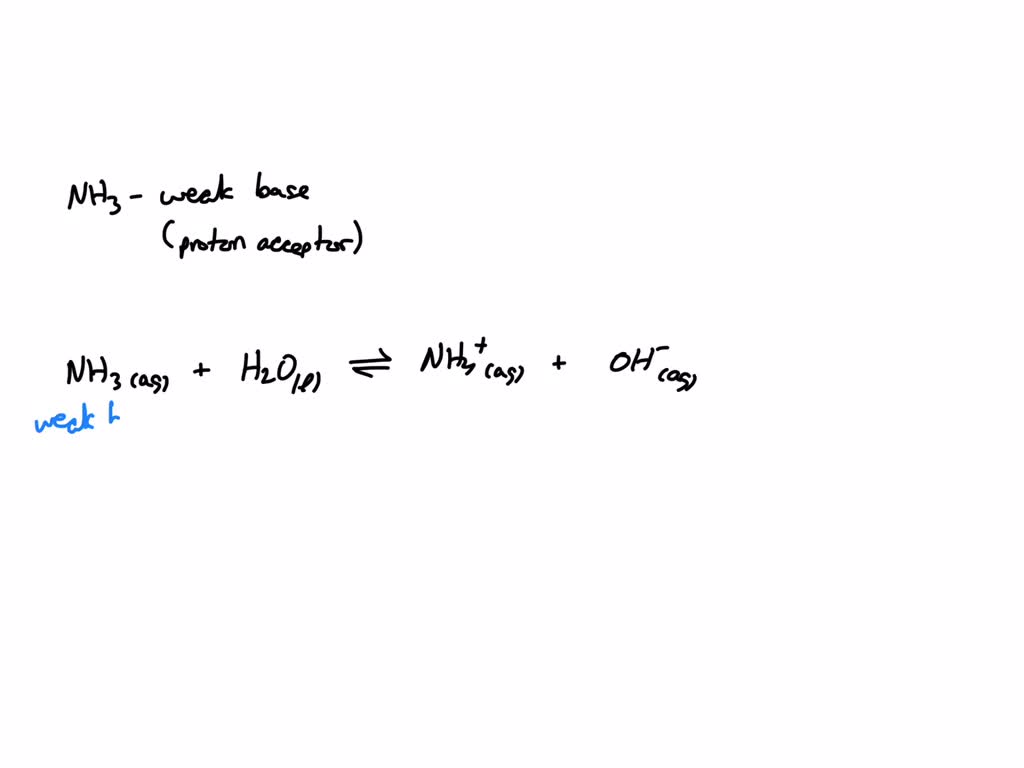 NH₃ - weak base
(proton acceptor)
NH₃(aq) + H₂O(l) ⇌ NH₄⁺(aq) + OH⁻(aq)
weak